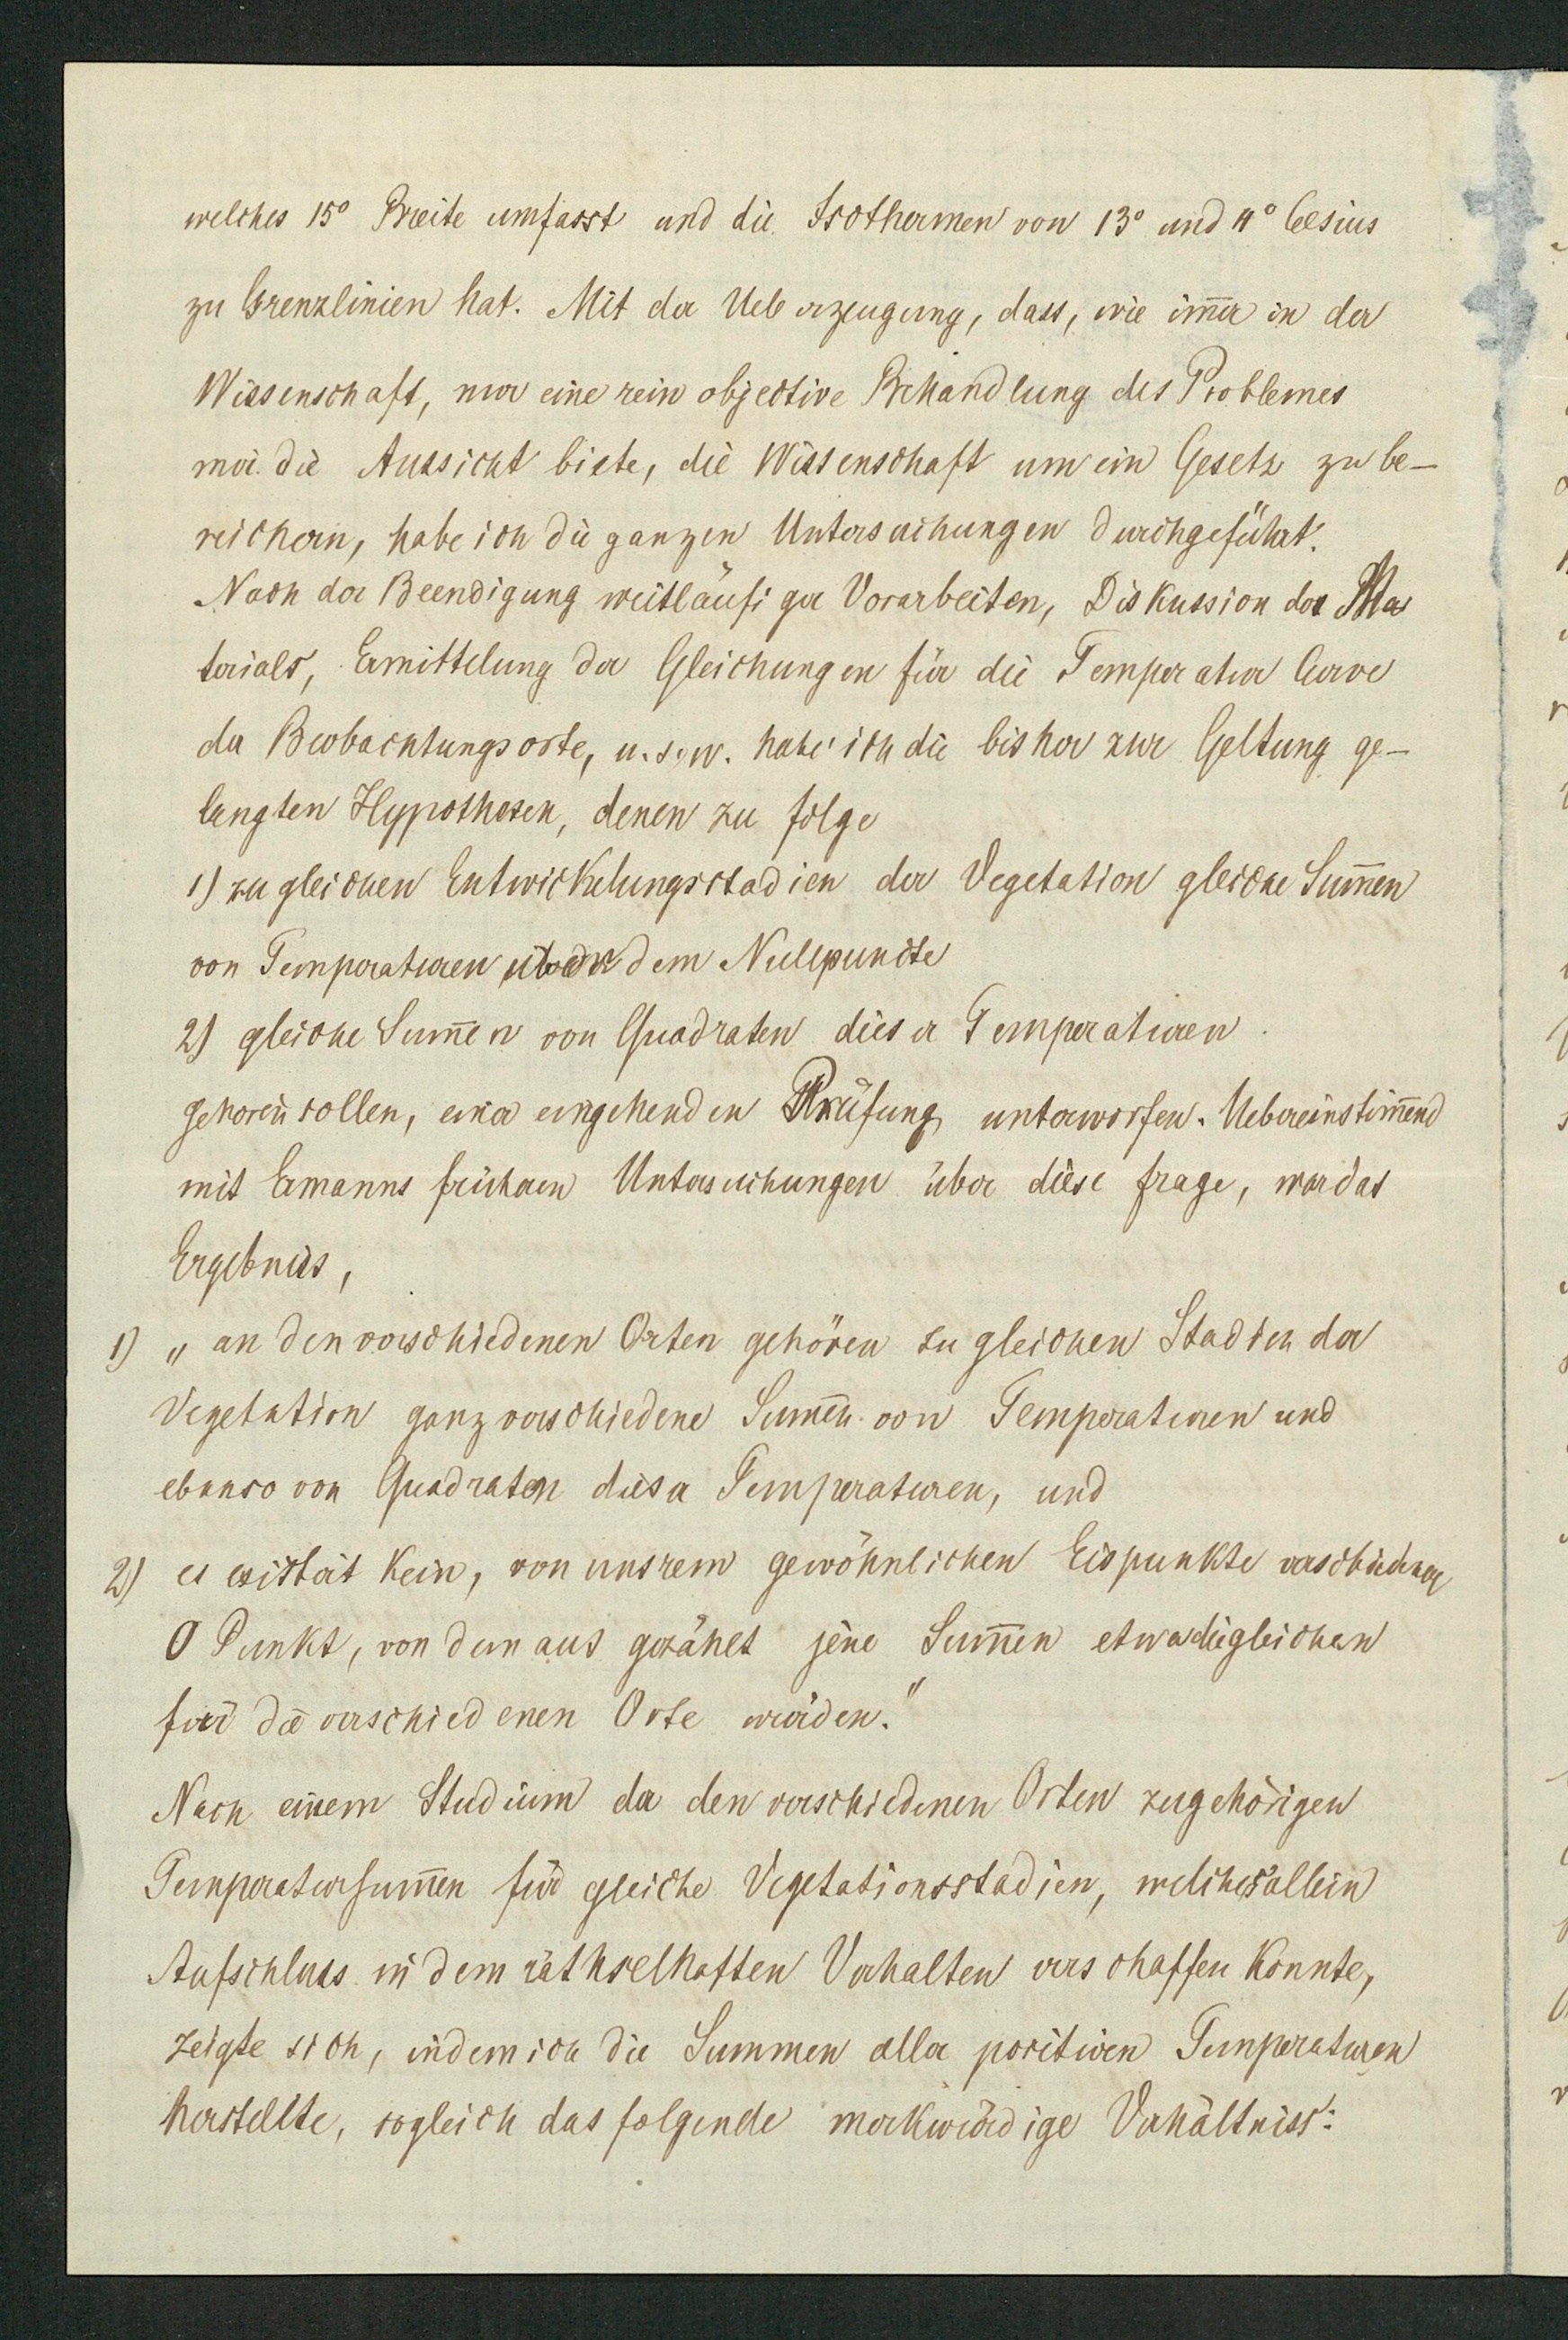 welches 15° Breite umfasst und die Isothermen von 13° und 4° Celsius
zu Grenzlinien hat. Mit der Ueberzeugung, dass, wie im̅er in der
Wissenschaft, nur eine rein objective Behandlung des Problemes
mir die Aussicht biete, die Wissenschaft um ein Gesetz zu be-
reichern, habe ich die ganzen Untersuchungen durchgeführt.
Nach der Beendigung weitläufiger Vorarbeiten, Diskussion des Ma
terials, Ermittelung der Gleichungen für die Temperatur Curve
der Beobachtungsorte, u.s.w. habe ich die bisher zur Geltung ge-
langten Hypothesen, denen zu folge
1) zu gleichen Entwickelungsstadien der Vegetation gleiche Sum̅en
von Temperaturen über dem Nullpuncte
2) gleiche Sum̅en von Quadraten dieser Temperaturen
gehören sollen, einer eingehenden Prüfung unterworfen. Uebereinstim̅end
mit Ermanns früheren Untersuchungen über diese frage, war das
Ergebniss,
1) „an den verschiedenen Orten gehören zu gleichen Stadien der
Vegetation ganz verschiedene Sum̅en von Temperaturen und
ebenso von Quadraten dieser Temperaturen, und
2) es existirt kein, von unsrem gewöhnlichen Eispunkte verschiedener
0 Punkt, von dem aus gezählt jene Sum̅en etwa die gleichen
für die verschiedenen Orte würden."
Nach einem Studium der den verschiedenen Orten zugehörigen
Temperatursum̅en für gleiche Vegetationsstadien, welches allein
Aufschluss in dem räthselhaften Verhalten verschaffen konnte,
zeigte sich, indem ich die Summen aller positiven Temperaturen
herstellte, sogleich das folgende merkwürdige Verhältniss: